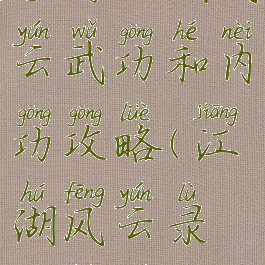 yún wǔ gōng hé nèi
云武功和内
gōng gōng lüè jiāng
功攻略(江
hú fēng yún lù
湖风云录